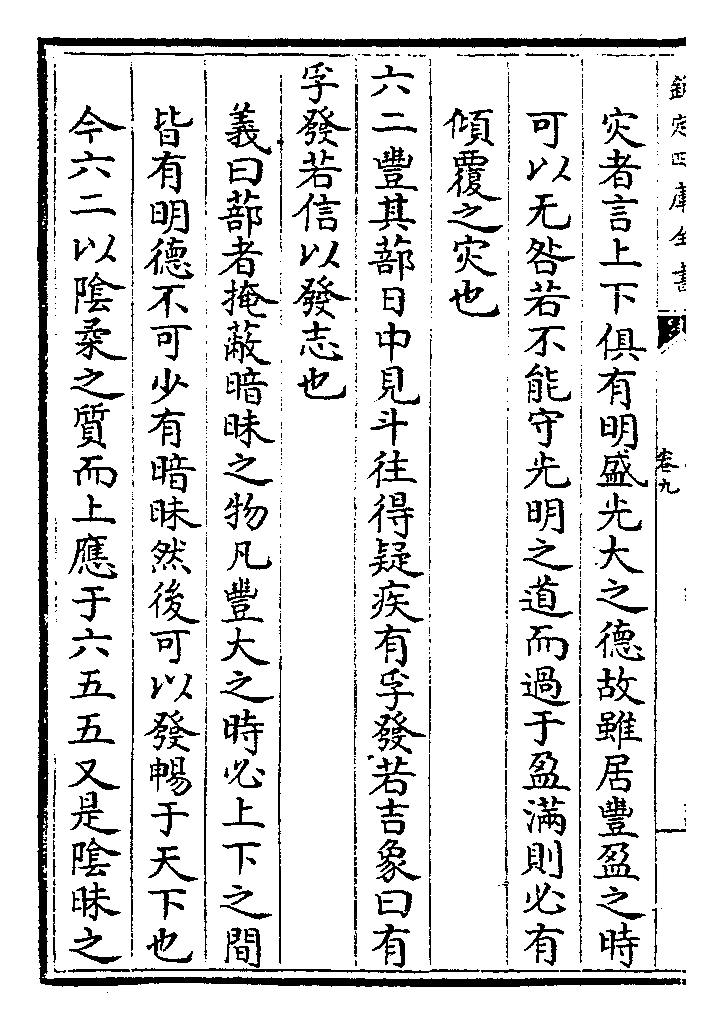 欽定四庫全書
卷九
灾者言上下俱有明盛光大之德故雖居豐盈之時
可以无咎若不能守光明之道而過于盈滿則必有
傾覆之灾也
六二豐其蔀日中見斗往得疑疾有孚發若吉象曰有
孚發若信以發志也
義曰蔀者掩蔽暗昧之物凡豐大之時必上下之間
皆有明德不可少有暗昧然後可以發暢于天下也
今六二以隂柔之質而上應于六五五又是隂昧之